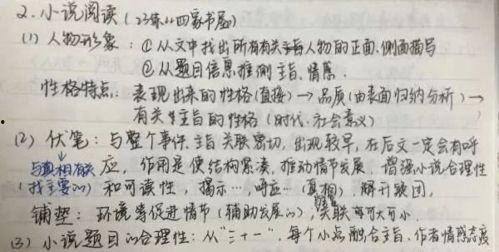 2. 小说阅读(23练11四寄书屋)
(1) 人物形象:①从文中找出所有有关人物的正面、侧面描写
②从题目信息推测主旨、情感.
性格特点:表现出来的性格(直接)→品质(由表面归纳分析)→
有关主旨的性格(时代、社会意义)
(2) 伏笔:与整个事件、主旨关联密切,出现较早,在后文一定会有呼
与真相有关 应,作用是使结构紧凑,推动情节发展,增强小说合理性
(找主要的) 和可读性,揭示…,呼应…(真相),解开谜团,
铺垫:环境等促进情节(辅助发展的),关联可大可小.
(3) 小说题目的合理性:从“三十一”,每个小点融合主旨,作者情感态度